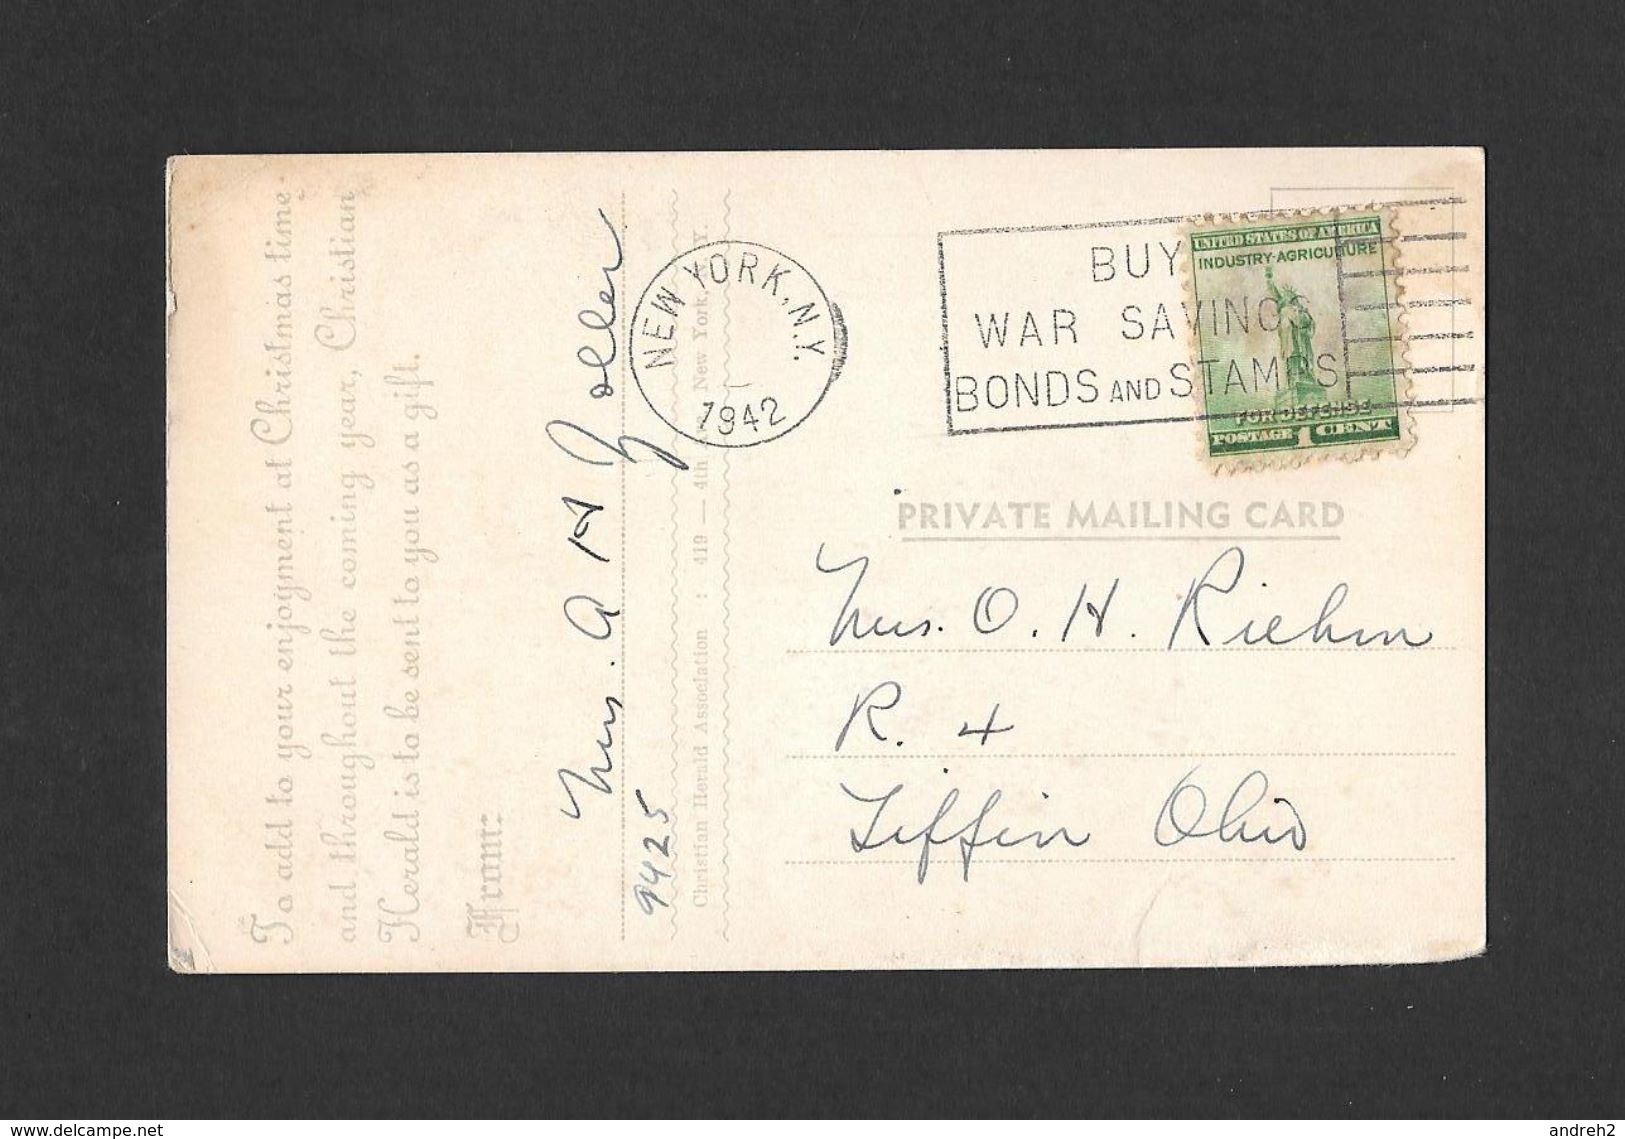 To add to your enjoyment at Christmas time
and throughout the coming year, Christian
Herald is to be sent to you as a gift.
From:
Mrs. A H Zoller
9425
Christian Herald Association : 419 — 4th Ave. New York, N.Y.
NEW YORK, N.Y.
1942
BUY
WAR SAVINGS
BONDS AND STAMPS
UNITED STATES OF AMERICA
INDUSTRY-AGRICULTURE
FOR DEFENSE
POSTAGE 1 CENT
PRIVATE MAILING CARD
Mrs. O. H. Riehm
R. 4
Tiffin Ohio
www.delcampe.net
andreh2